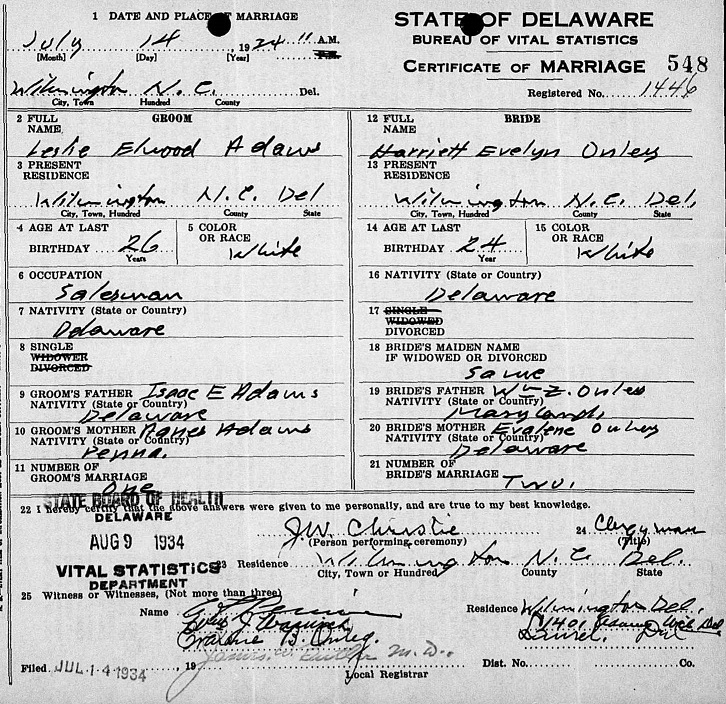 1 DATE AND PLACE OF MARRIAGE
July 14 1934 11 A.M. P.M.
[Month] [Day] [Year]
Wilmington N. C. Del.
City, Town Hundred County
STATE OF DELAWARE
BUREAU OF VITAL STATISTICS
CERTIFICATE OF MARRIAGE 548
Registered No. 1446
2 FULL NAME GROOM
Leslie Elwood Adams
3 PRESENT RESIDENCE
Wilmington N. C. Del
City, Town, Hundred County State
4 AGE AT LAST BIRTHDAY 26 Years
5 COLOR OR RACE White
6 OCCUPATION
Salesman
7 NATIVITY (State or Country)
Delaware
8 SINGLE
WIDOWER
DIVORCED
9 GROOM'S FATHER Isaac E Adams
NATIVITY (State or Country)
Delaware
10 GROOM'S MOTHER Agnes Adams
NATIVITY (State or Country)
Penna.
11 NUMBER OF GROOM'S MARRIAGE
One
12 FULL NAME BRIDE
Harriett Evelyn Onley
13 PRESENT RESIDENCE
Wilmington N. C. Del.
City, Town, Hundred County State
14 AGE AT LAST BIRTHDAY 24 Years
15 COLOR OR RACE White
16 NATIVITY (State or Country)
Delaware
17 SINGLE
WIDOWED
DIVORCED
18 BRIDE'S MAIDEN NAME
IF WIDOWED OR DIVORCED
Same
19 BRIDE'S FATHER Wm Z. Onley
NATIVITY (State or Country)
Maryland.
20 BRIDE'S MOTHER Evalene Onley
NATIVITY (State or Country)
Delaware
21 NUMBER OF BRIDE'S MARRIAGE
Two.
22 I hereby certify that the above answers were given to me personally, and are true to my best knowledge.
STATE BOARD OF HEALTH
DELAWARE
AUG 9 1934
VITAL STATISTICS
DEPARTMENT
J. W. Christie 24 Clergyman
(Person performing ceremony) (Title)
23 Residence Wilmington N. C. Del.
City, Town or Hundred County State
25 Witness or Witnesses, (Not more than three)
Name Residence Wilmington Del.
1401 Del
Evalene B. Onley. Laurel, Del
Filed JUL 14 1934, 19 James W. M. D. Dist. No. Co.
Local Registrar